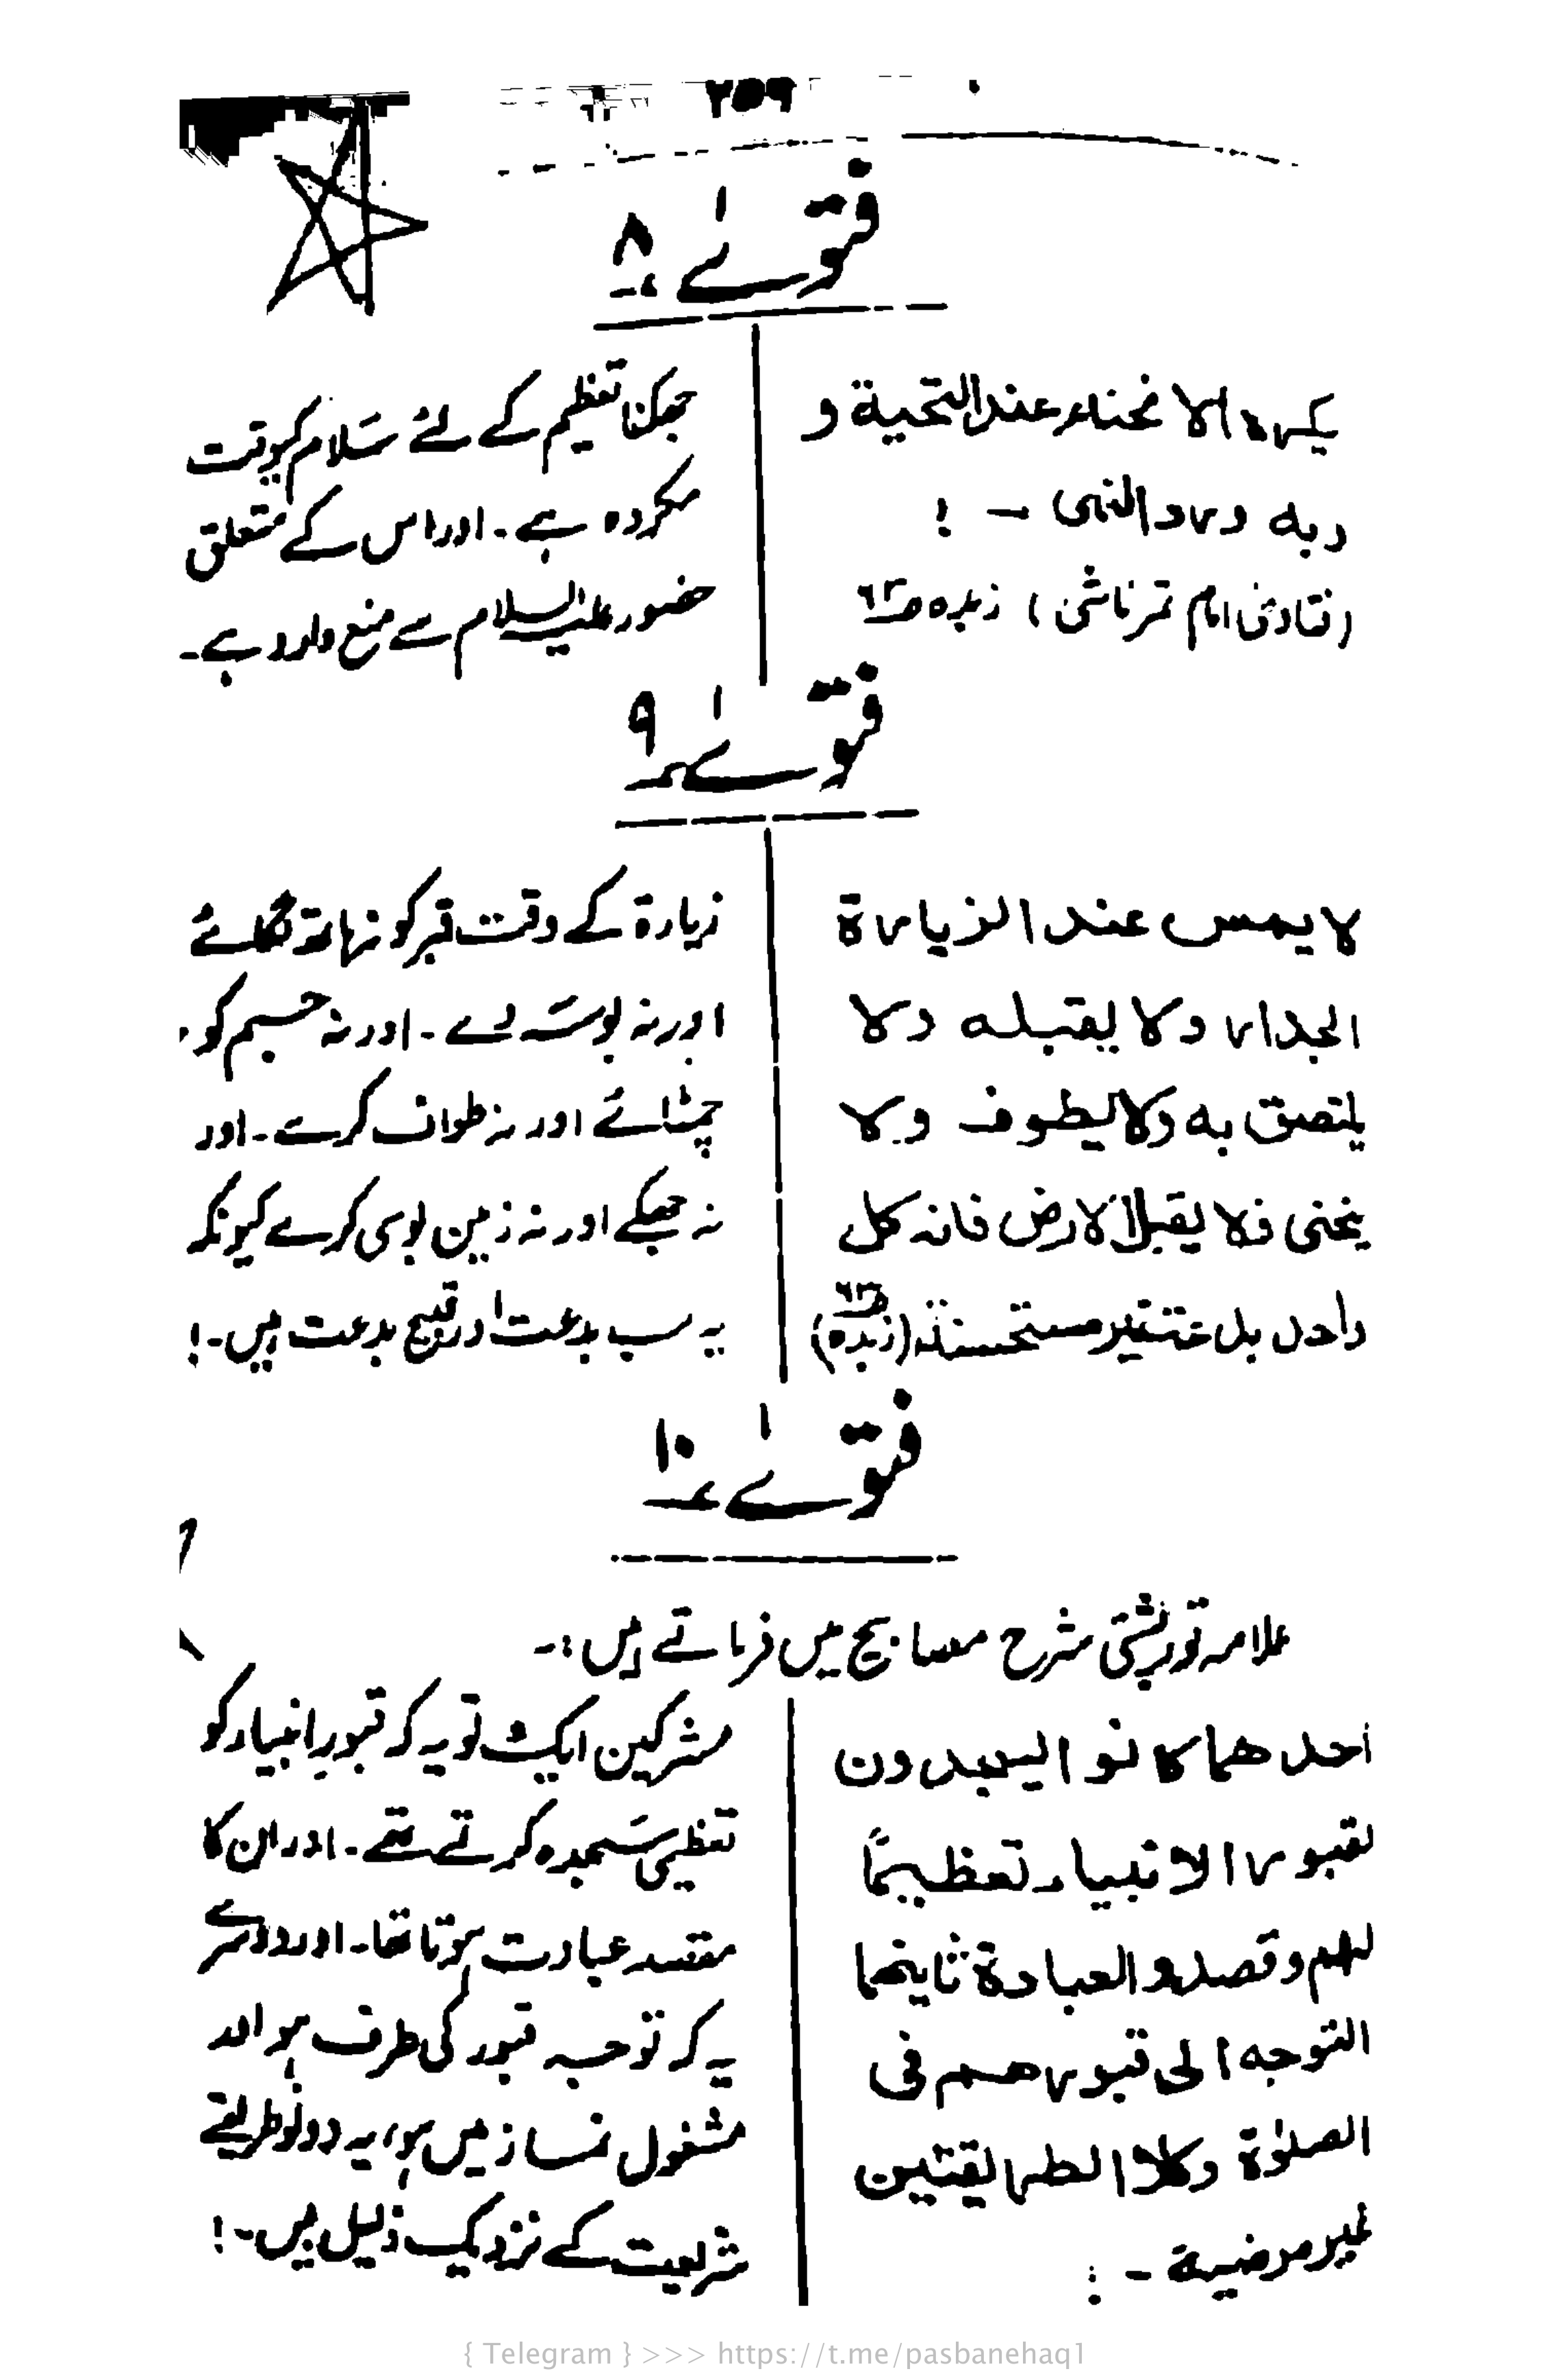 ۲۵۹
فتویٰ ۸
یکرہ الانحناء عند التحیة و
وبه ورد النهی - !
(فتاویٰ امام تمرتاشی) زبدہ ص۶
جھکنا تعظیم کے لئے سلام کیوقت
مکروہ ہے۔ اور اس کے متعلق
حضور علیہ السلام سے منع وارد ہے۔
فتویٰ ۹
لا یمس عند الزیارة
الجدار ولا یقبله ولا
یلتصق به ولا یطوف ولا
ینحنی فلا یقبل الارض فانه کل
واحد بل غیر مستحسنة (زبدہ)
زیارة کے وقت قبر کو نہ ہاتھ لگائے
اور نہ بوسہ لے۔ اور نہ جسم کو
چمٹائے اور نہ طواف کرے۔ اور
نہ جھکے اور نہ زمین بوسی کرے کیونکہ
یہ سب بدعت اور قبیح بدعت ہیں۔!
فتویٰ ۱۰
علامہ تورپشتی شرح مصابیح میں فرماتے ہیں:۔
احدهما کانوا یسجدون
لقبور الانبیاء تعظیمًا
لهم وقصد والعبادة ثانیهما
التوجه الی قبورهم فی
الصلوٰة وکلا الطریقتین
غیر مرضیة - :
مشرکین ایک تو یہ کہ قبورِ انبیاء کو
تعظیمی سجدہ کرتے تھے۔ اور ان کا
مقصد عبادت ہوتا تھا۔ اور دوسرے
یہ کہ توجہ قبور کی طرف ہو اور
مشغول نماز میں ہو، یہ دونو طریقے
شریعت کے نزدیک ذلیل ہیں۔!
{ Telegram } >>> https://t.me/pasbanehaq1